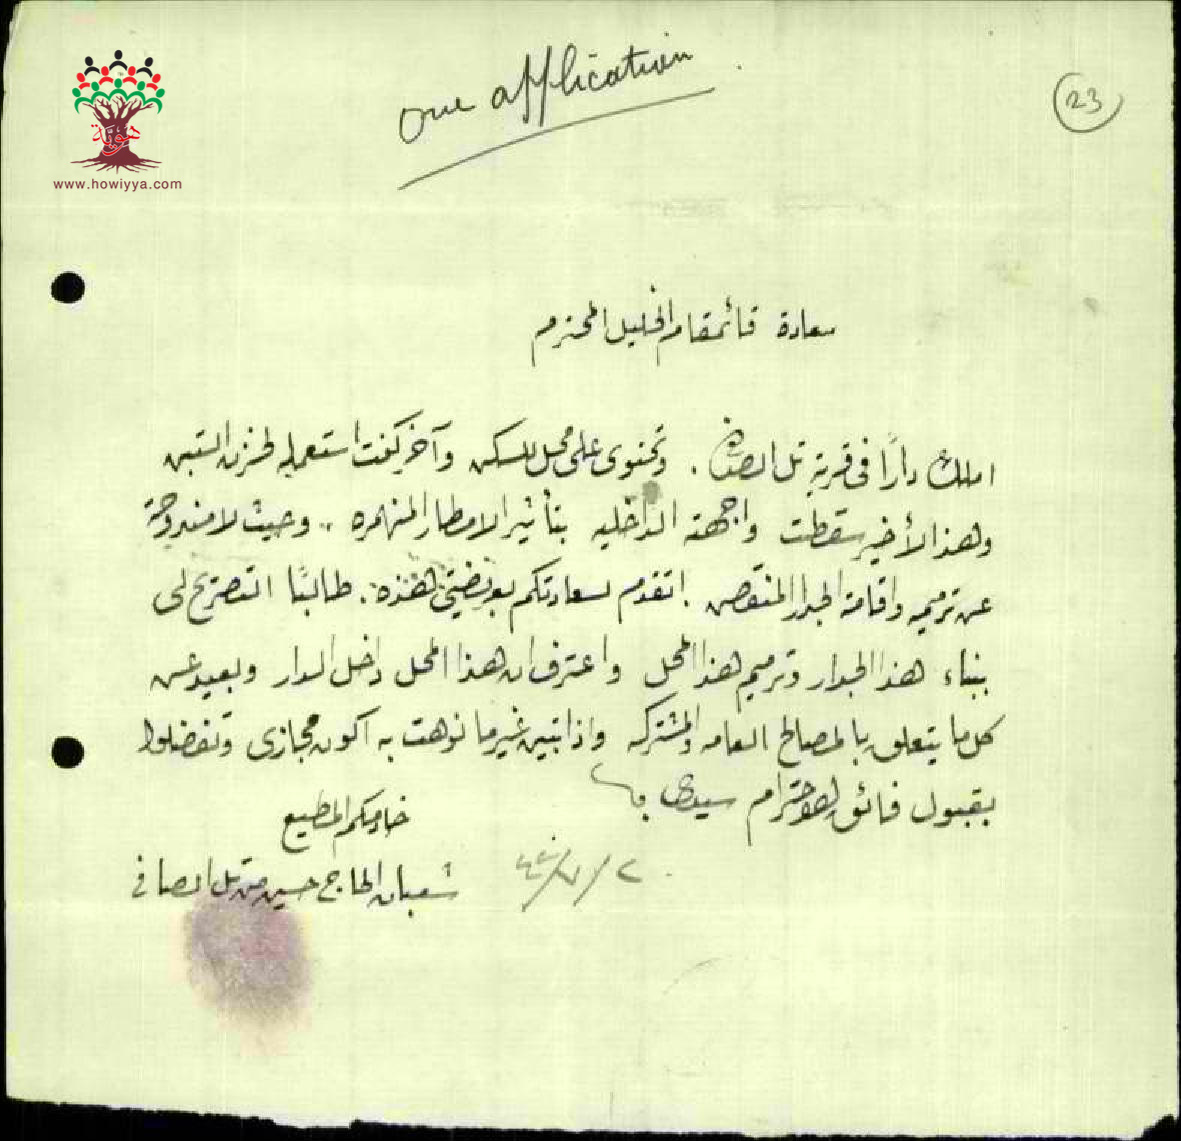 هوية
www.howiyya.com
one application
23
سعادة قائمقام الخليل المحترم
املك دارًا في قرية تل الصافي . وتحتوى على محل للسكن وآخر كنت استعمله لخزن التبن
وهذا الأخير سقطت واجهته الداخليه بتأثير الامطار المنهمره .. وحيث لا مندوحة
عن ترميمه واقامة الجدار المنقوص . اتقدم لسعادتكم بعريضتي هذه . طالبًا التصريح لى
ببناء هذا الجدار وترميم هذا المحل واعترف ان هذا المحل داخل الدار وبعيد عن
كل ما يتعلق بالمصالح العامه والمشتركه واذا تبين غير ما نوهت به اكون مجازى وتفضلوا
بقبول فائق الاحترام سيدى
خادمكم المطيع
شعبان الحاج حسين من تل الصافي